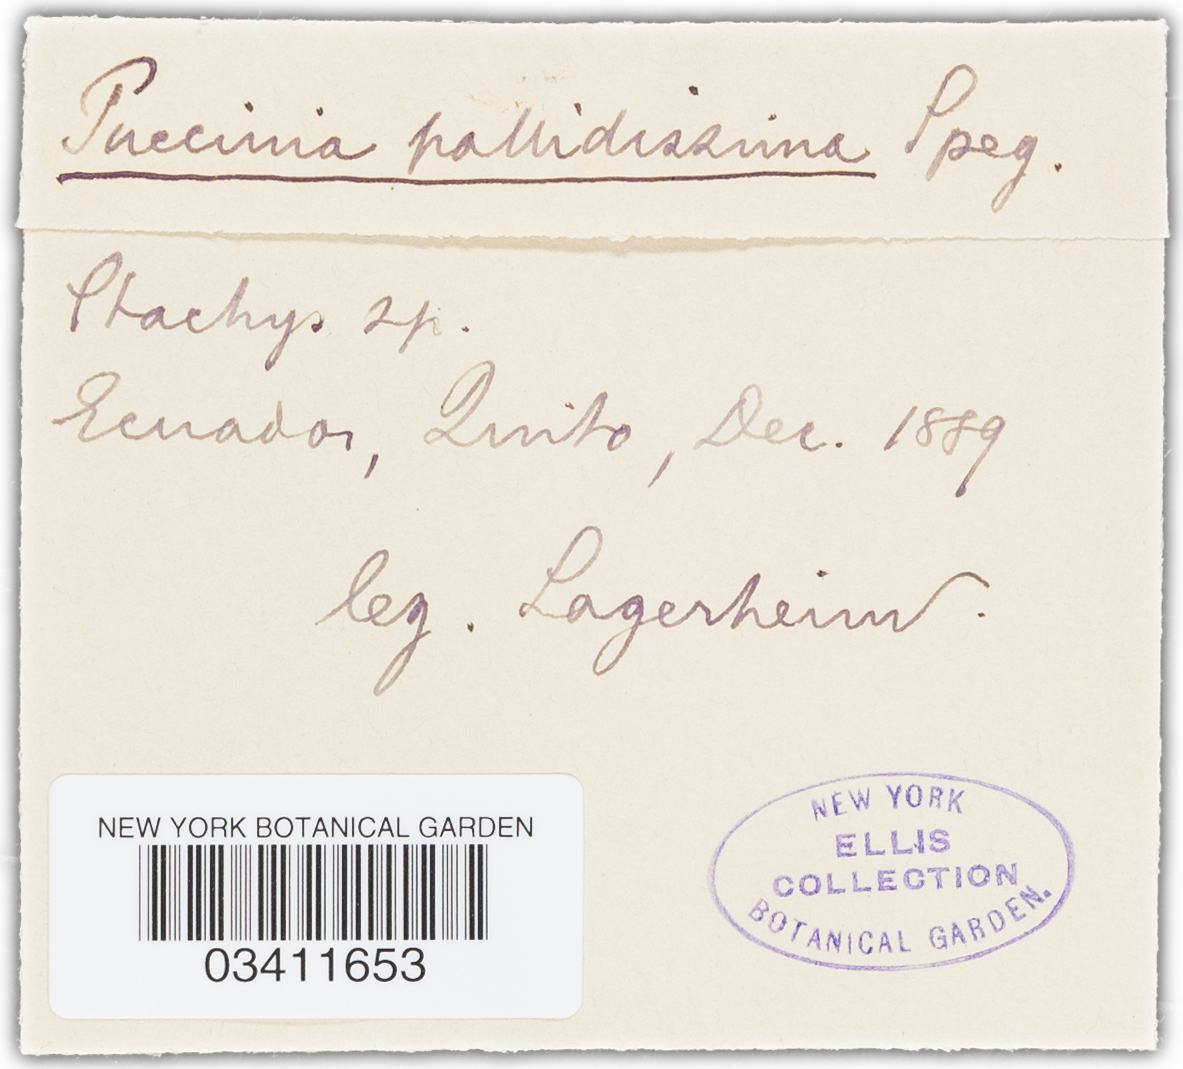 Puccinia pallidissima Speg.
Stachys sp.
Ecuador, Quito, Dec. 1889
leg. Lagerheim.
NEW YORK BOTANICAL GARDEN
03411653
NEW YORK
ELLIS
COLLECTION
BOTANICAL GARDEN.